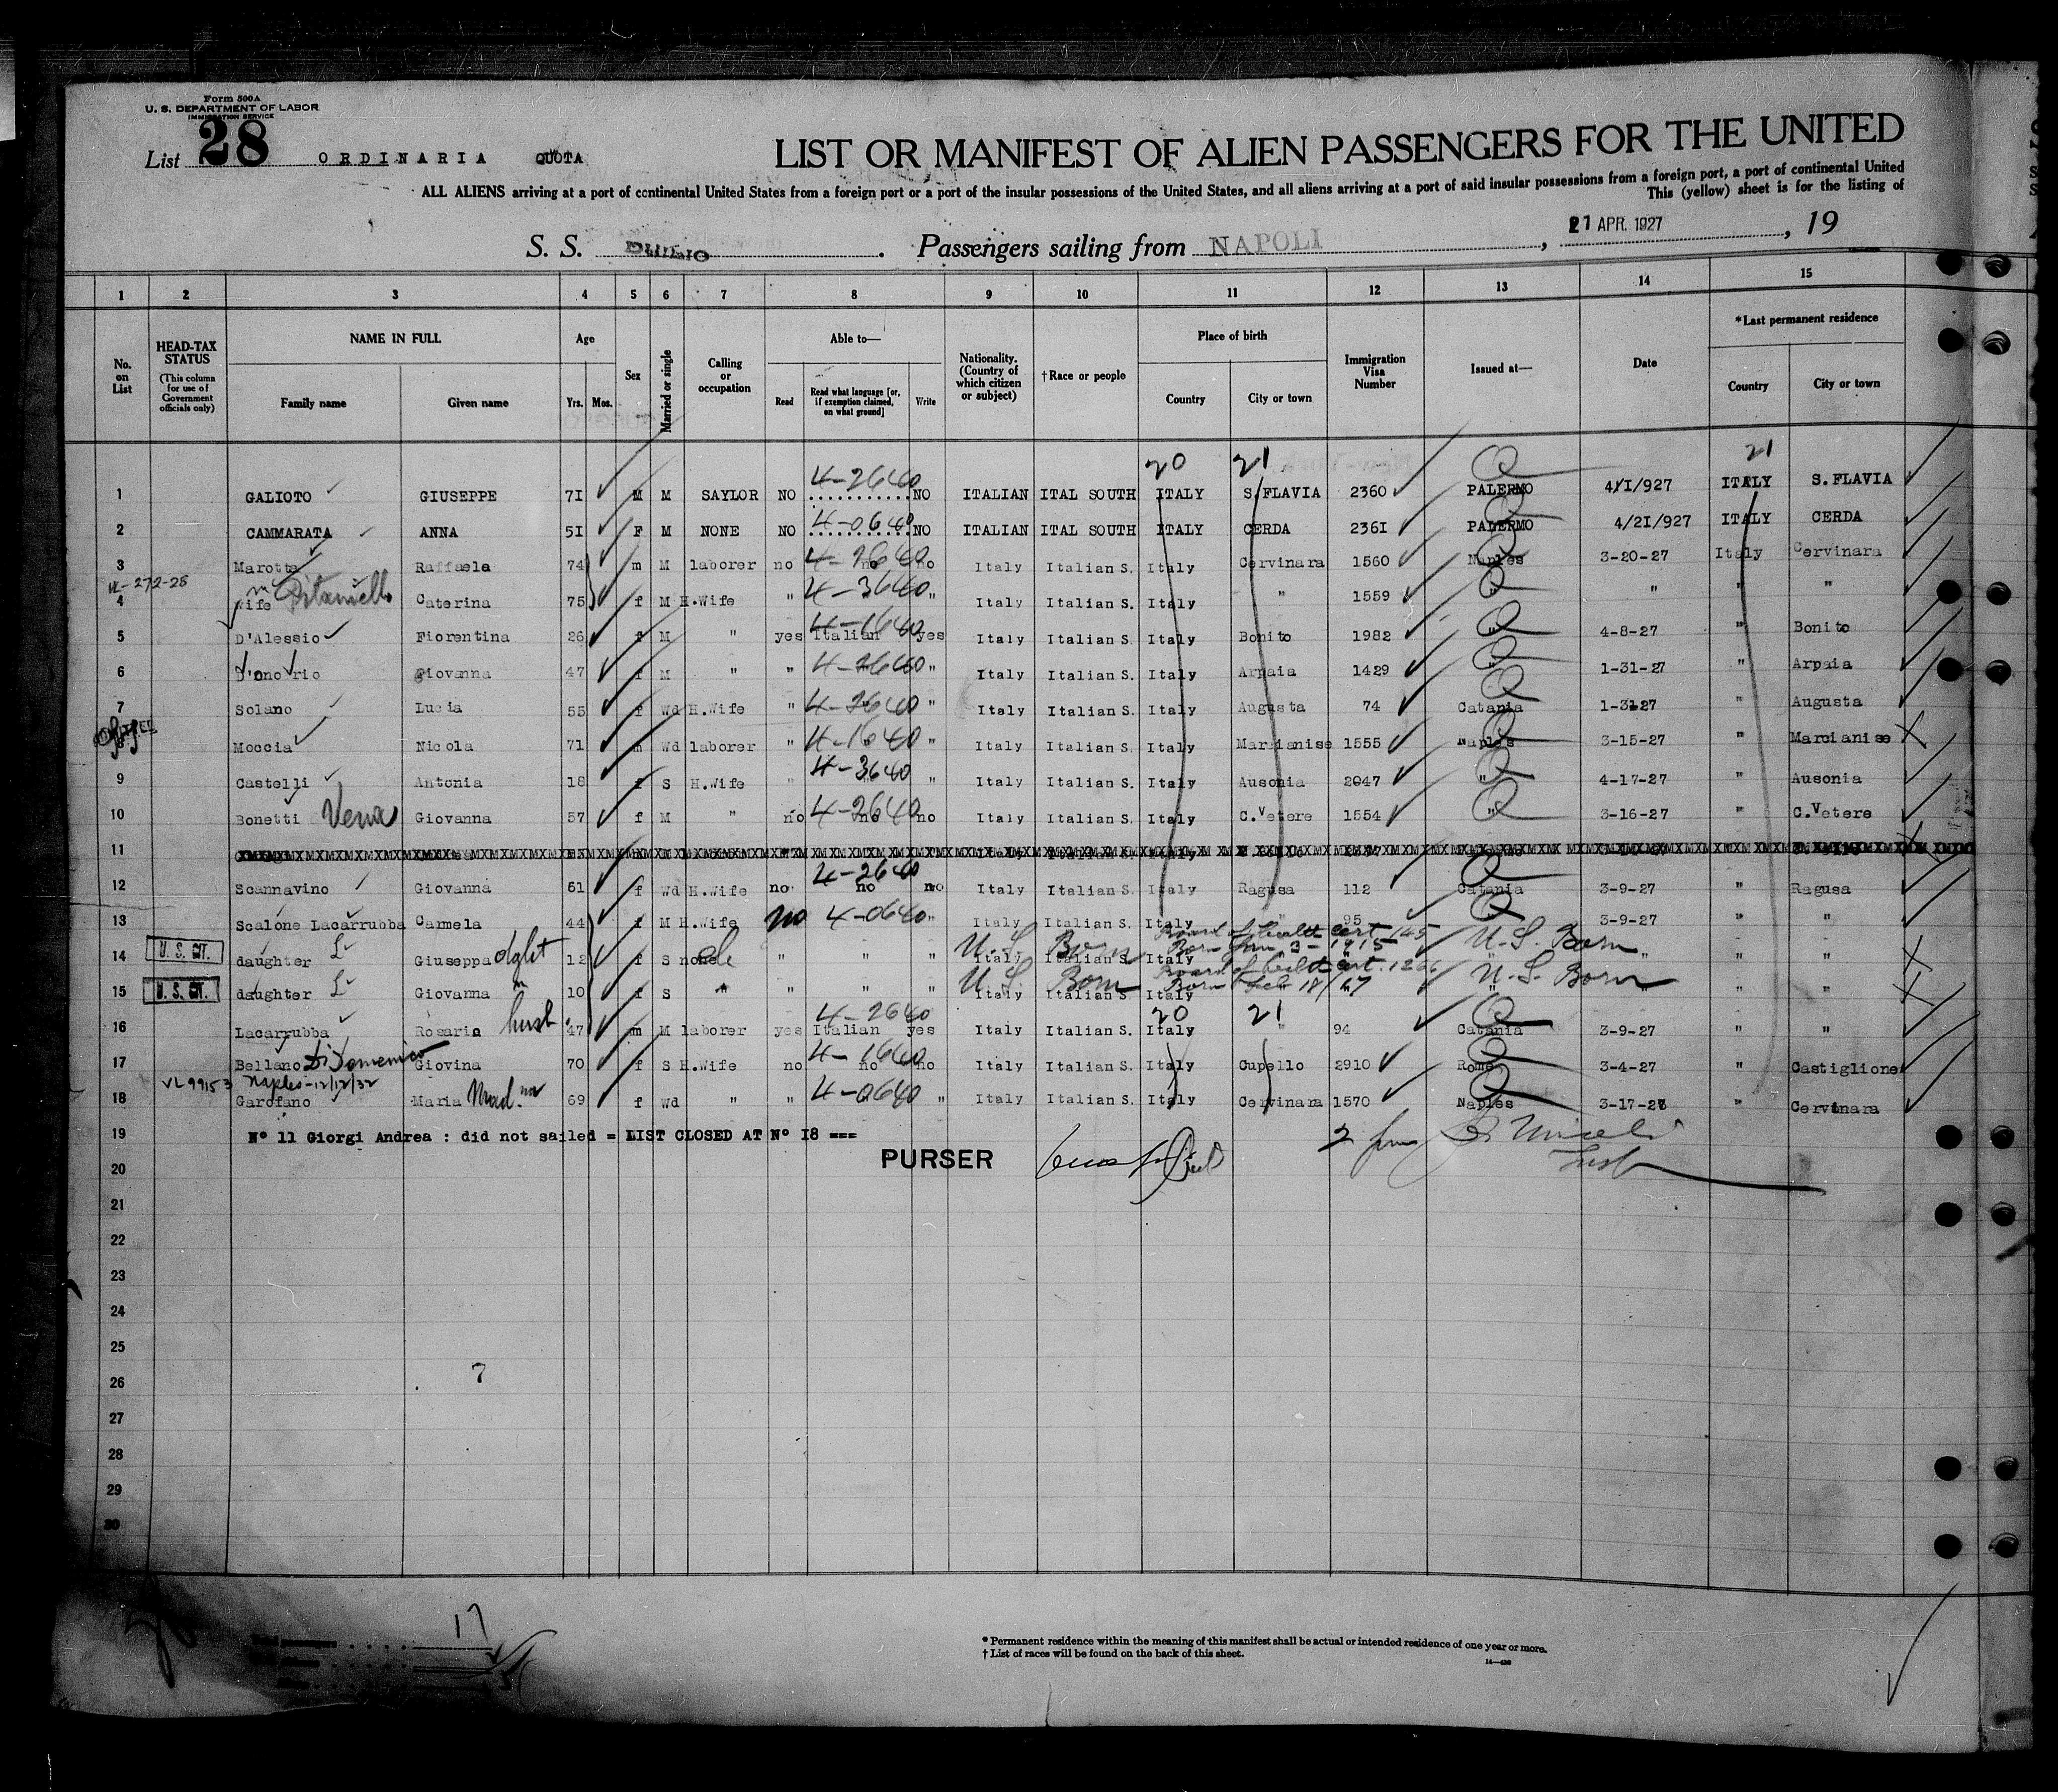 Form 500A
U. S. DEPARTMENT OF LABOR
IMMIGRATION SERVICE
List 28 ORDINARIA QUOTA
LIST OR MANIFEST OF ALIEN PASSENGERS FOR THE UNITED
ALL ALIENS arriving at a port of continental United States from a foreign port or a port of the insular possessions of the United States, and all aliens arriving at a port of said insular possessions from a foreign port, a port of continental United
This (yellow) sheet is for the listing of
S. S. DUILIO . Passengers sailing from NAPOLI , 21 APR. 1927 , 19
1 2 3 4 5 6 7 8 9 10 11 12 13 14 15
No. on List
HEAD-TAX STATUS (This column for use of Government officials only)
NAME IN FULL Family name Given name
Age Yrs. Mos.
Sex
Married or single
Calling or occupation
Able to— Read Read what language [or, if exemption claimed, on what ground] Write
Nationality. (Country of which citizen or subject)
†Race or people
Place of birth Country City or town
Immigration Visa Number
Issued at—
Date
*Last permanent residence Country City or town
20 21 21
1 GALIOTO GIUSEPPE 7I M M SAYLOR NO 4-2640 NO ITALIAN ITAL SOUTH ITALY S.FLAVIA 2360 Q PALERMO 4/I/927 ITALY S.FLAVIA
2 CAMMARATA ANNA 5I F M NONE NO 4-0640 NO ITALIAN ITAL SOUTH ITALY CERDA 236I PALERMO 4/2I/927 ITALY CERDA
3 Marotta Raffaela 74 m M laborer no 4-2640 no no Italy Italian S. Italy Cervinara 1560 Naples 3-20-27 Italy Cervinara
4 wife Caterina 75 f M H.Wife " 4-3640 " Italy Italian S. Italy " 1559 " " " "
5 D'Alessio Fiorentina 26 f M " yes Italian 4-1640 yes Italy Italian S. Italy Bonito 1982 " 4-8-27 " Bonito
6 D'onofrio Giovanna 47 f M " " 4-2640 " Italy Italian S. Italy Arpaia 1429 " 1-31-27 " Arpaia
7 Solano Lucia 55 f Wd H.Wife " 4-2640 " Italy Italian S. Italy Augusta 74 Catania 1-3127 " Augusta
8 Moccia Nicola 71 m Wd laborer " 4-1640 " Italy Italian S. Italy Marcianise 1555 Naples 3-15-27 " Marcianise
9 Castelli Antonia 18 f S H.Wife " 4-3640 " Italy Italian S. Italy Ausonia 2047 " 4-17-27 " Ausonia
10 Bonetti Vena Giovanna 57 f M " no 4-2640 no no Italy Italian S. Italy C.Vetere 1554 " 3-16-27 " C.Vetere
11
12 Scannavino Giovanna 61 f Wd H.Wife no 4-2640 no no Italy Italian S. Italy Ragusa 112 Catania 3-9-27 " Ragusa
13 Scalone Lacarrubba Carmela 44 f M H.Wife no 4-0640 " Italy Italian S. Italy " 95 3-9-27 " "
14 U. S. CIT. daughter Giuseppa 12 f S none " " " Italy Italian S. U.S. Born Board of Health cert. 145 Born Jan 3-1915 U.S. Born " " "
15 U. S. CIT. daughter Giovanna 10 f S " " " " Italy Italian S. Italy U.S. Born Board of Health cert. 1266 Born Feb 18/17 U.S. Born " " "
16 Lacarrubba Rosario husb. 47 m M laborer yes Italian 4-2640 yes Italy Italian S. Italy 20 21 " 94 Catania 3-9-27 " "
17 Bellano Di Domenico Giovina 70 f S H.Wife no 4-1640 no no Italy Italian S. Italy Cupello 2910 Rome 3-4-27 " Castiglione
Naples-12/12/32
18 Garofano Maria 69 f Wd " " 4-0640 " Italy Italian S. Italy Cervinara 1570 Naples 3-17-27 " Cervinara
19 Nº 11 Giorgi Andrea : did not sailed = LIST CLOSED AT Nº I8 ===
20 PURSER
21
22
23
24
25
26
7
27
28
29
30
17
* Permanent residence within the meaning of this manifest shall be actual or intended residence of one year or more.
† List of races will be found on the back of this sheet.